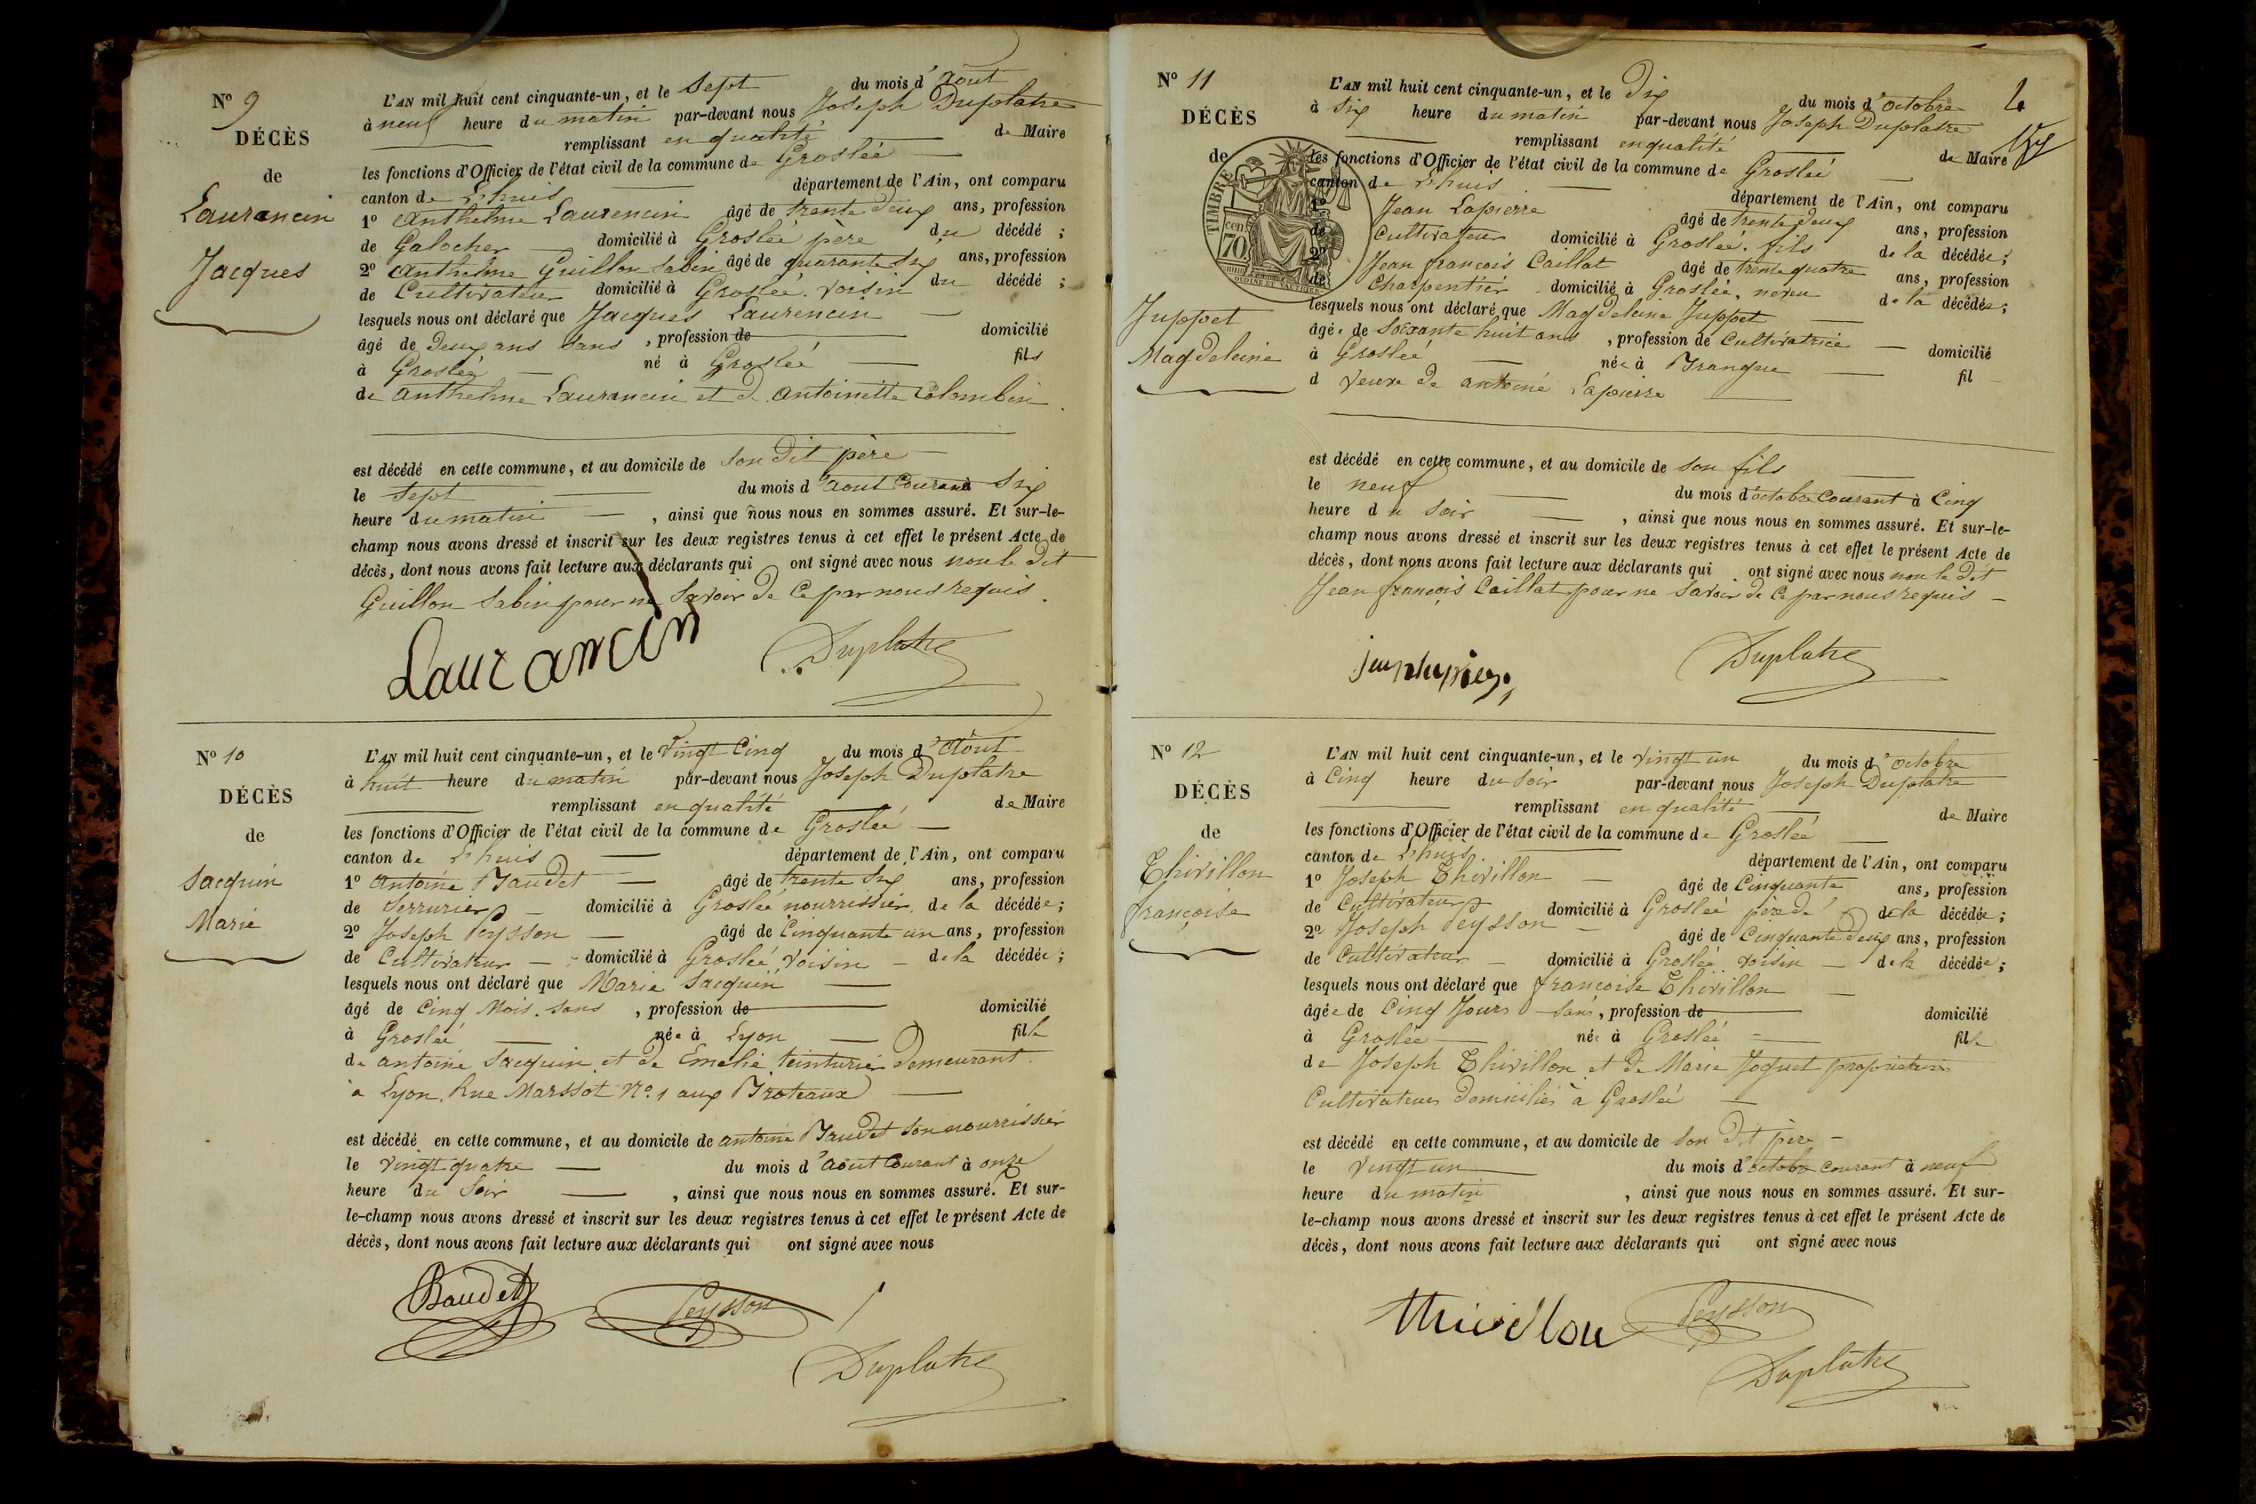 Nº 9
DÉCÈS
de
Laurancin
Jacques
L'AN mil huit cent cinquante-un, et le sept du mois d'août
à neuf heure du matin par-devant nous Joseph Duplatre
remplissant en qualité de Maire
les fonctions d'Officier de l'état civil de la commune de Groslée
canton de L'huis département de l'Ain, ont comparu
1º Anthelme Laurencin âgé de trente deux ans, profession
de Galocher domicilié à Groslée père du décédé ;
2º Anthelme Guillon Sabin âgé de quarante six ans, profession
de Cultivateur domicilié à Groslée. voisin du décédé ;
lesquels nous ont déclaré que Jacques Laurencin
âgé de deux ans sans , profession de domicilié
à Groslée né à Groslée fils
de anthelme Laurancin et de antoinette Colombin
est décédé en cette commune, et au domicile de son dit père
le sept du mois d'aout courant à six
heure du matin , ainsi que nous nous en sommes assuré. Et sur-le-
champ nous avons dressé et inscrit sur les deux registres tenus à cet effet le présent Acte de
décès, dont nous avons fait lecture aux déclarants qui ont signé avec nous non le dit
Guillon Sabin pour ne savoir de ce par nous requis.
Laurancin Duplatre
Nº 10
DÉCÈS
de
Sacquin
Marie
L'AN mil huit cent cinquante-un, et le vingt cinq du mois d'Août
à huit heure du matin par-devant nous Joseph Duplatre
remplissant en qualité de Maire
les fonctions d'Officier de l'état civil de la commune de Groslée
canton de L'huis département de l'Ain, ont comparu
1º Antoine Baudet âgé de trente six ans, profession
de Serrurier domicilié à Groslée nourrissier de la décédée ;
2º Joseph Peysson âgé de Cinquante un ans, profession
de Cultivateur domicilié à Groslée voisin de la décédée ;
lesquels nous ont déclaré que Marie Sacquin
âgé de Cinq Mois. sans , profession de domicilié
à Groslée née à Lyon fille
de antoine Sacquin et de Emelie teinturier demeurant
à Lyon, Rue Marssot Nº 1 aux Broteaux
est décédé en cette commune, et au domicile de antoine Baudet son nourrissier
le vingt quatre du mois d'aout courant à onze
heure du soir , ainsi que nous nous en sommes assuré. Et sur-
le-champ nous avons dressé et inscrit sur les deux registres tenus à cet effet le présent Acte de
décès, dont nous avons fait lecture aux déclarants qui ont signé avec nous
Baudet Peysson
Duplatre
Nº 11
DÉCÈS
de
TIMBRE
70
Juppet
Magdeleine
L'AN mil huit cent cinquante-un, et le Dix du mois d'octobre
à six heure du matin par-devant nous Joseph Duplatre
remplissant en qualité de Maire
les fonctions d'Officier de l'état civil de la commune de Groslée
canton de L'huis département de l'Ain, ont comparu
1º Jean Lapierre âgé de trente deux ans, profession
de Cultivateur domicilié à Groslée. fils de la décédée ;
2º Jean françois Caillat âgé de trente quatre ans, profession
de Charpentier domicilié à Groslée, neveu de la décédée ;
lesquels nous ont déclaré que Magdeleine Juppet
âgée de soixante huit ans , profession de Cultivatrice domicilié
à Groslée née à Brangue fil
d veuve de antoine Lapierre
est décédé en cette commune, et au domicile de son fils
le neuf du mois d'octobre courant à Cinq
heure du soir , ainsi que nous nous en sommes assuré. Et sur-le-
champ nous avons dressé et inscrit sur les deux registres tenus à cet effet le présent Acte de
décès, dont nous avons fait lecture aux déclarants qui ont signé avec nous non le dit
Jean françois Caillat pour ne savoir de ce par nous requis
Duplatre
Nº 12
DÉCÈS
de
Thivillon
françoise
L'AN mil huit cent cinquante-un, et le vingt un du mois d'octobre
à Cinq heure du soir par-devant nous Joseph Duplatre
remplissant en qualité de Maire
les fonctions d'Officier de l'état civil de la commune de Groslée
canton de L'huis département de l'Ain, ont comparu
1º Joseph Thivillon âgé de Cinquante ans, profession
de Cultivateur domicilié à Groslée père de de la décédée ;
2º Joseph Peysson âgé de Cinquante deux ans, profession
de Cultivateur domicilié à Groslée voisin de la décédée ;
lesquels nous ont déclaré que françoise Thivillon
âgée de Cinq Jours sans , profession de domicilié
à Groslée née à Groslée fille
de Joseph Thivillon et de Marie Joguet propriétaires
Cultivateurs domiciliés à Groslée
est décédé en cette commune, et au domicile de son dit père
le vingt un du mois d'octobre courant à neuf
heure du matin , ainsi que nous nous en sommes assuré. Et sur-
le-champ nous avons dressé et inscrit sur les deux registres tenus à cet effet le présent Acte de
décès, dont nous avons fait lecture aux déclarants qui ont signé avec nous
thivillon Peysson
Duplatre